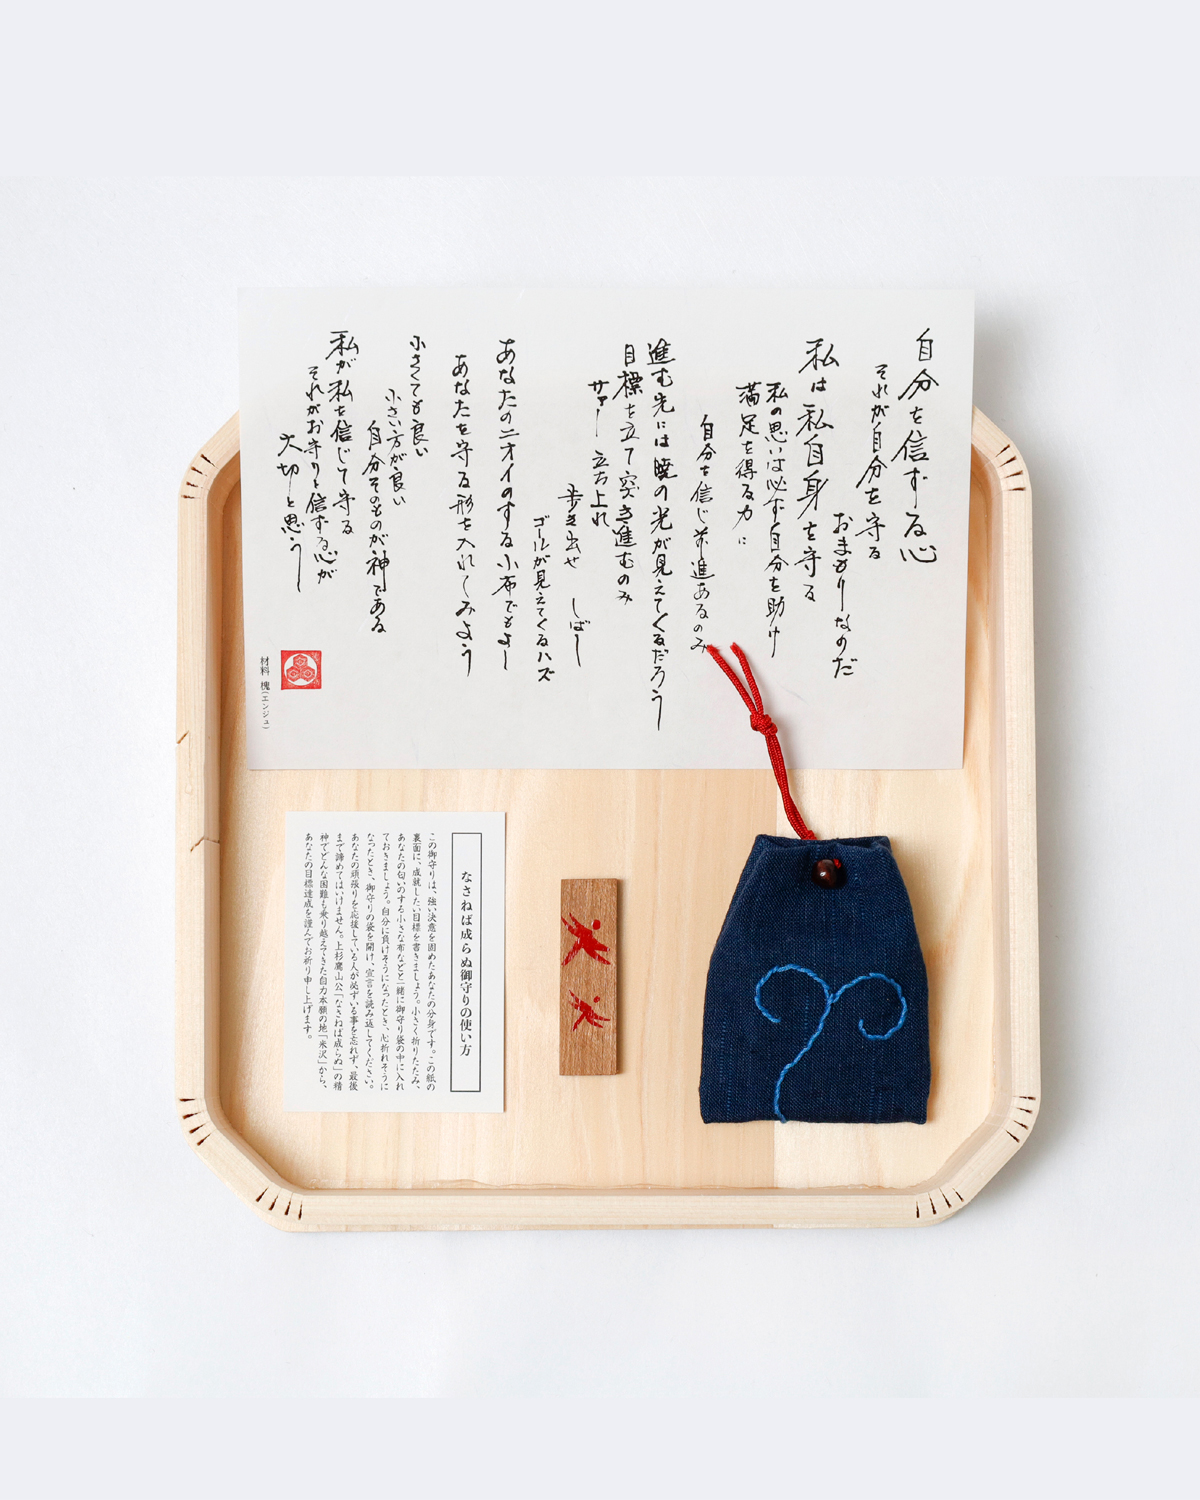 自分を信ずる心
それが自分を守る
おまもりなのだ
私は私自身を守る
私の思いは必ず自分を助け
満足を得る力に
自分を信じ前進あるのみ
進む先には暁の光が見えてくるだろう
目標を立て突き進むのみ
サァー 立ち上れ
歩き出せ しばし
ゴールが見えてくるハズ
あなたのニオイのする小布でもよし
あなたを守る形を入れてみよう
小さくても良い
小さい方が良い
自分そのものが神である
私が私を信じて守る
それがお守りと信ずる心が
大切と思う
材料 槐(エンジュ)
なさねば成らぬ御守りの使い方
この御守りは、強い決意を固めたあなたの分身です。この紙の
裏面に、成就したい目標を書きましょう。小さく折りたたみ、
あなたの匂いのする小さな布などと一緒に御守り袋の中に入れ
ておきましょう。自分に負けそうになったとき、心折れそうに
なったとき、御守りの袋を開け、宣言を読み返してください。
あなたの頑張りを応援している人が必ずいる事を忘れず、最後
まで諦めてはいけません。上杉鷹山公「なさねば成らぬ」の精
神でどんな困難も乗り越えてきた自力本願の地「米沢」から、
あなたの目標達成を謹んでお祈り申し上げます。